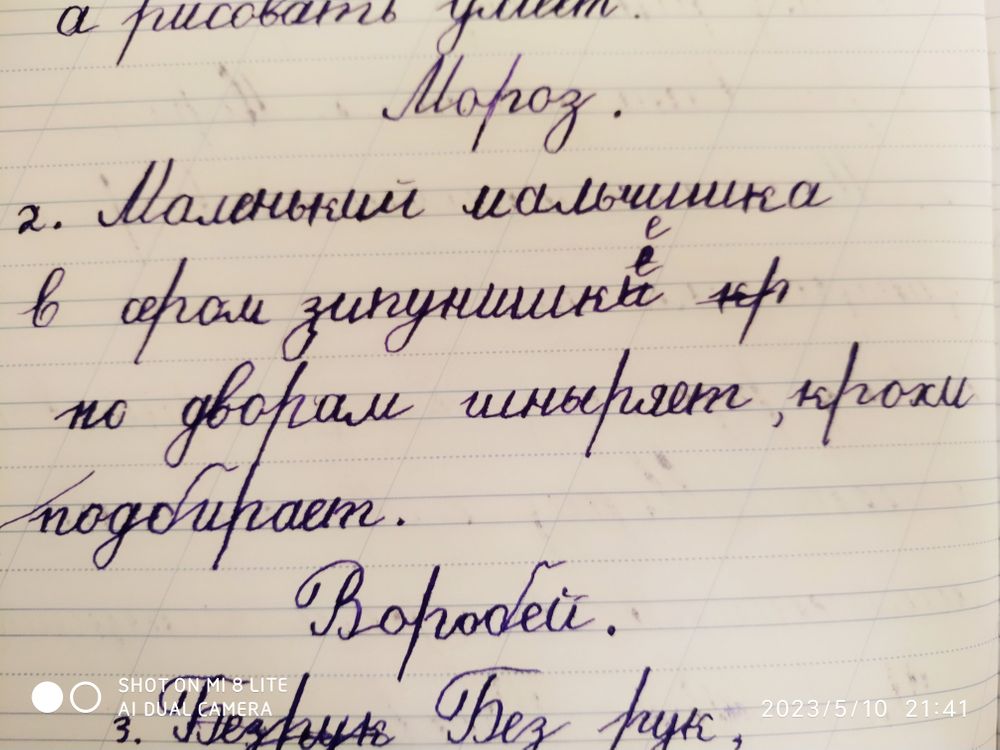 а рисовать умеет.
Мороз.
2. Маленький мальчишка
в сером зипунишке кр
по дворам шныряет, крохи
подбирает.
Воробей.
3. Безрук Без рук,
SHOT ON MI 8 LITE
AI DUAL CAMERA
2023/5/10 21:41